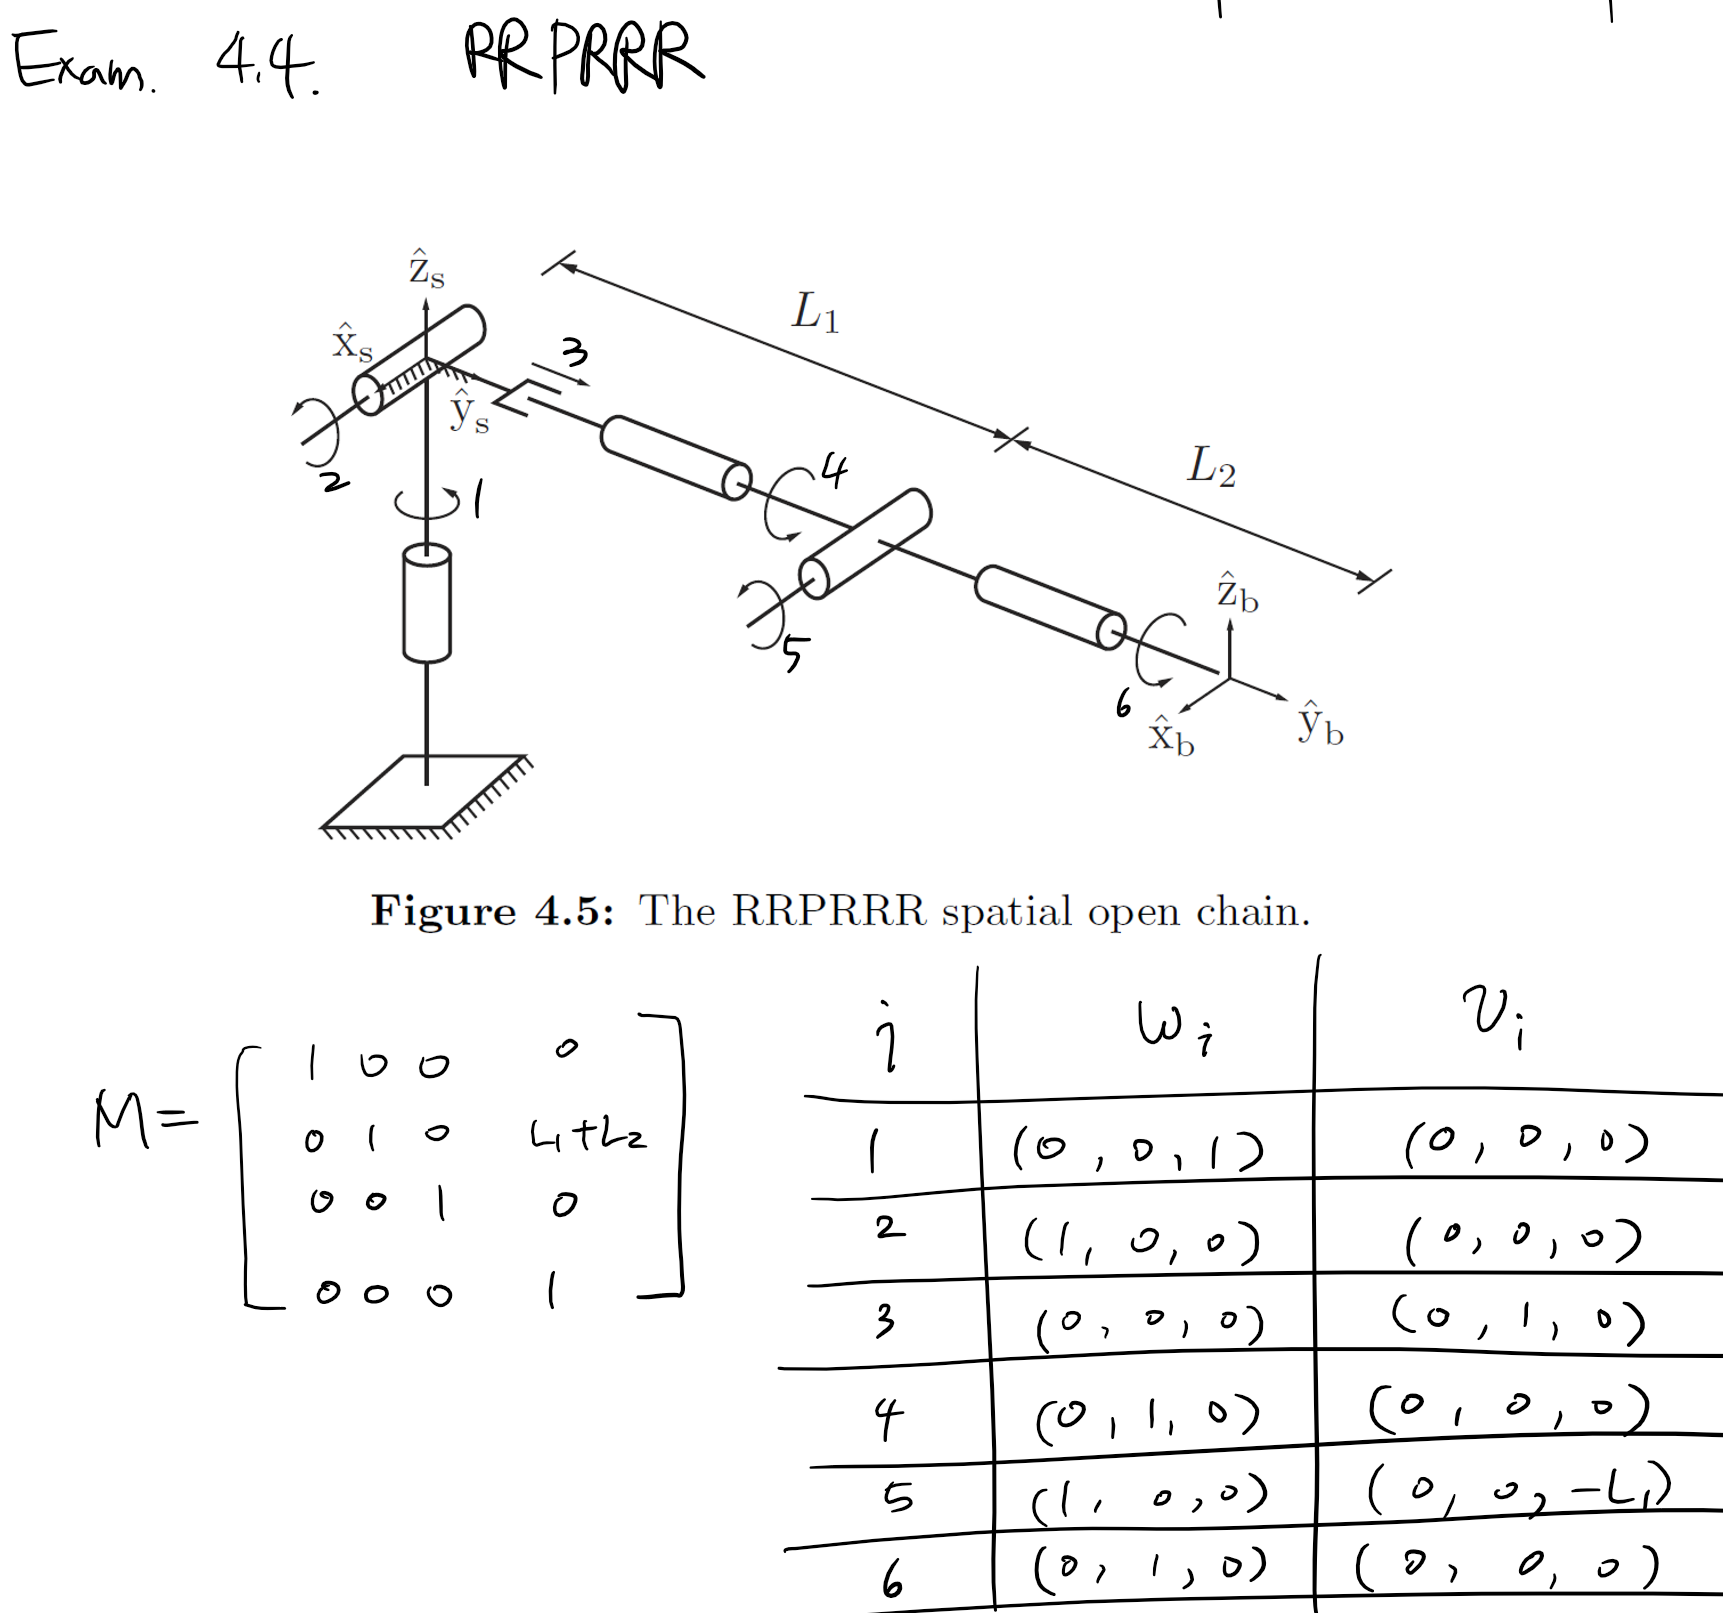 Exam. 4.4. RRPRRR
ẑs
L1
x̂s
3
ŷs
L2
4
2
1
ẑb
5
6
x̂b
ŷb
Figure 4.5: The RRPRRR spatial open chain.
i ωi vi
M= [ 1 0 0 0
0 1 0 L1+L2
0 0 1 0
0 0 0 1 ]
1 (0, 0, 1) (0, 0, 0)
2 (1, 0, 0) (0, 0, 0)
3 (0, 0, 0) (0, 1, 0)
4 (0, 1, 0) (0, 0, 0)
5 (1, 0, 0) (0, 0, -L1)
6 (0, 1, 0) (0, 0, 0)